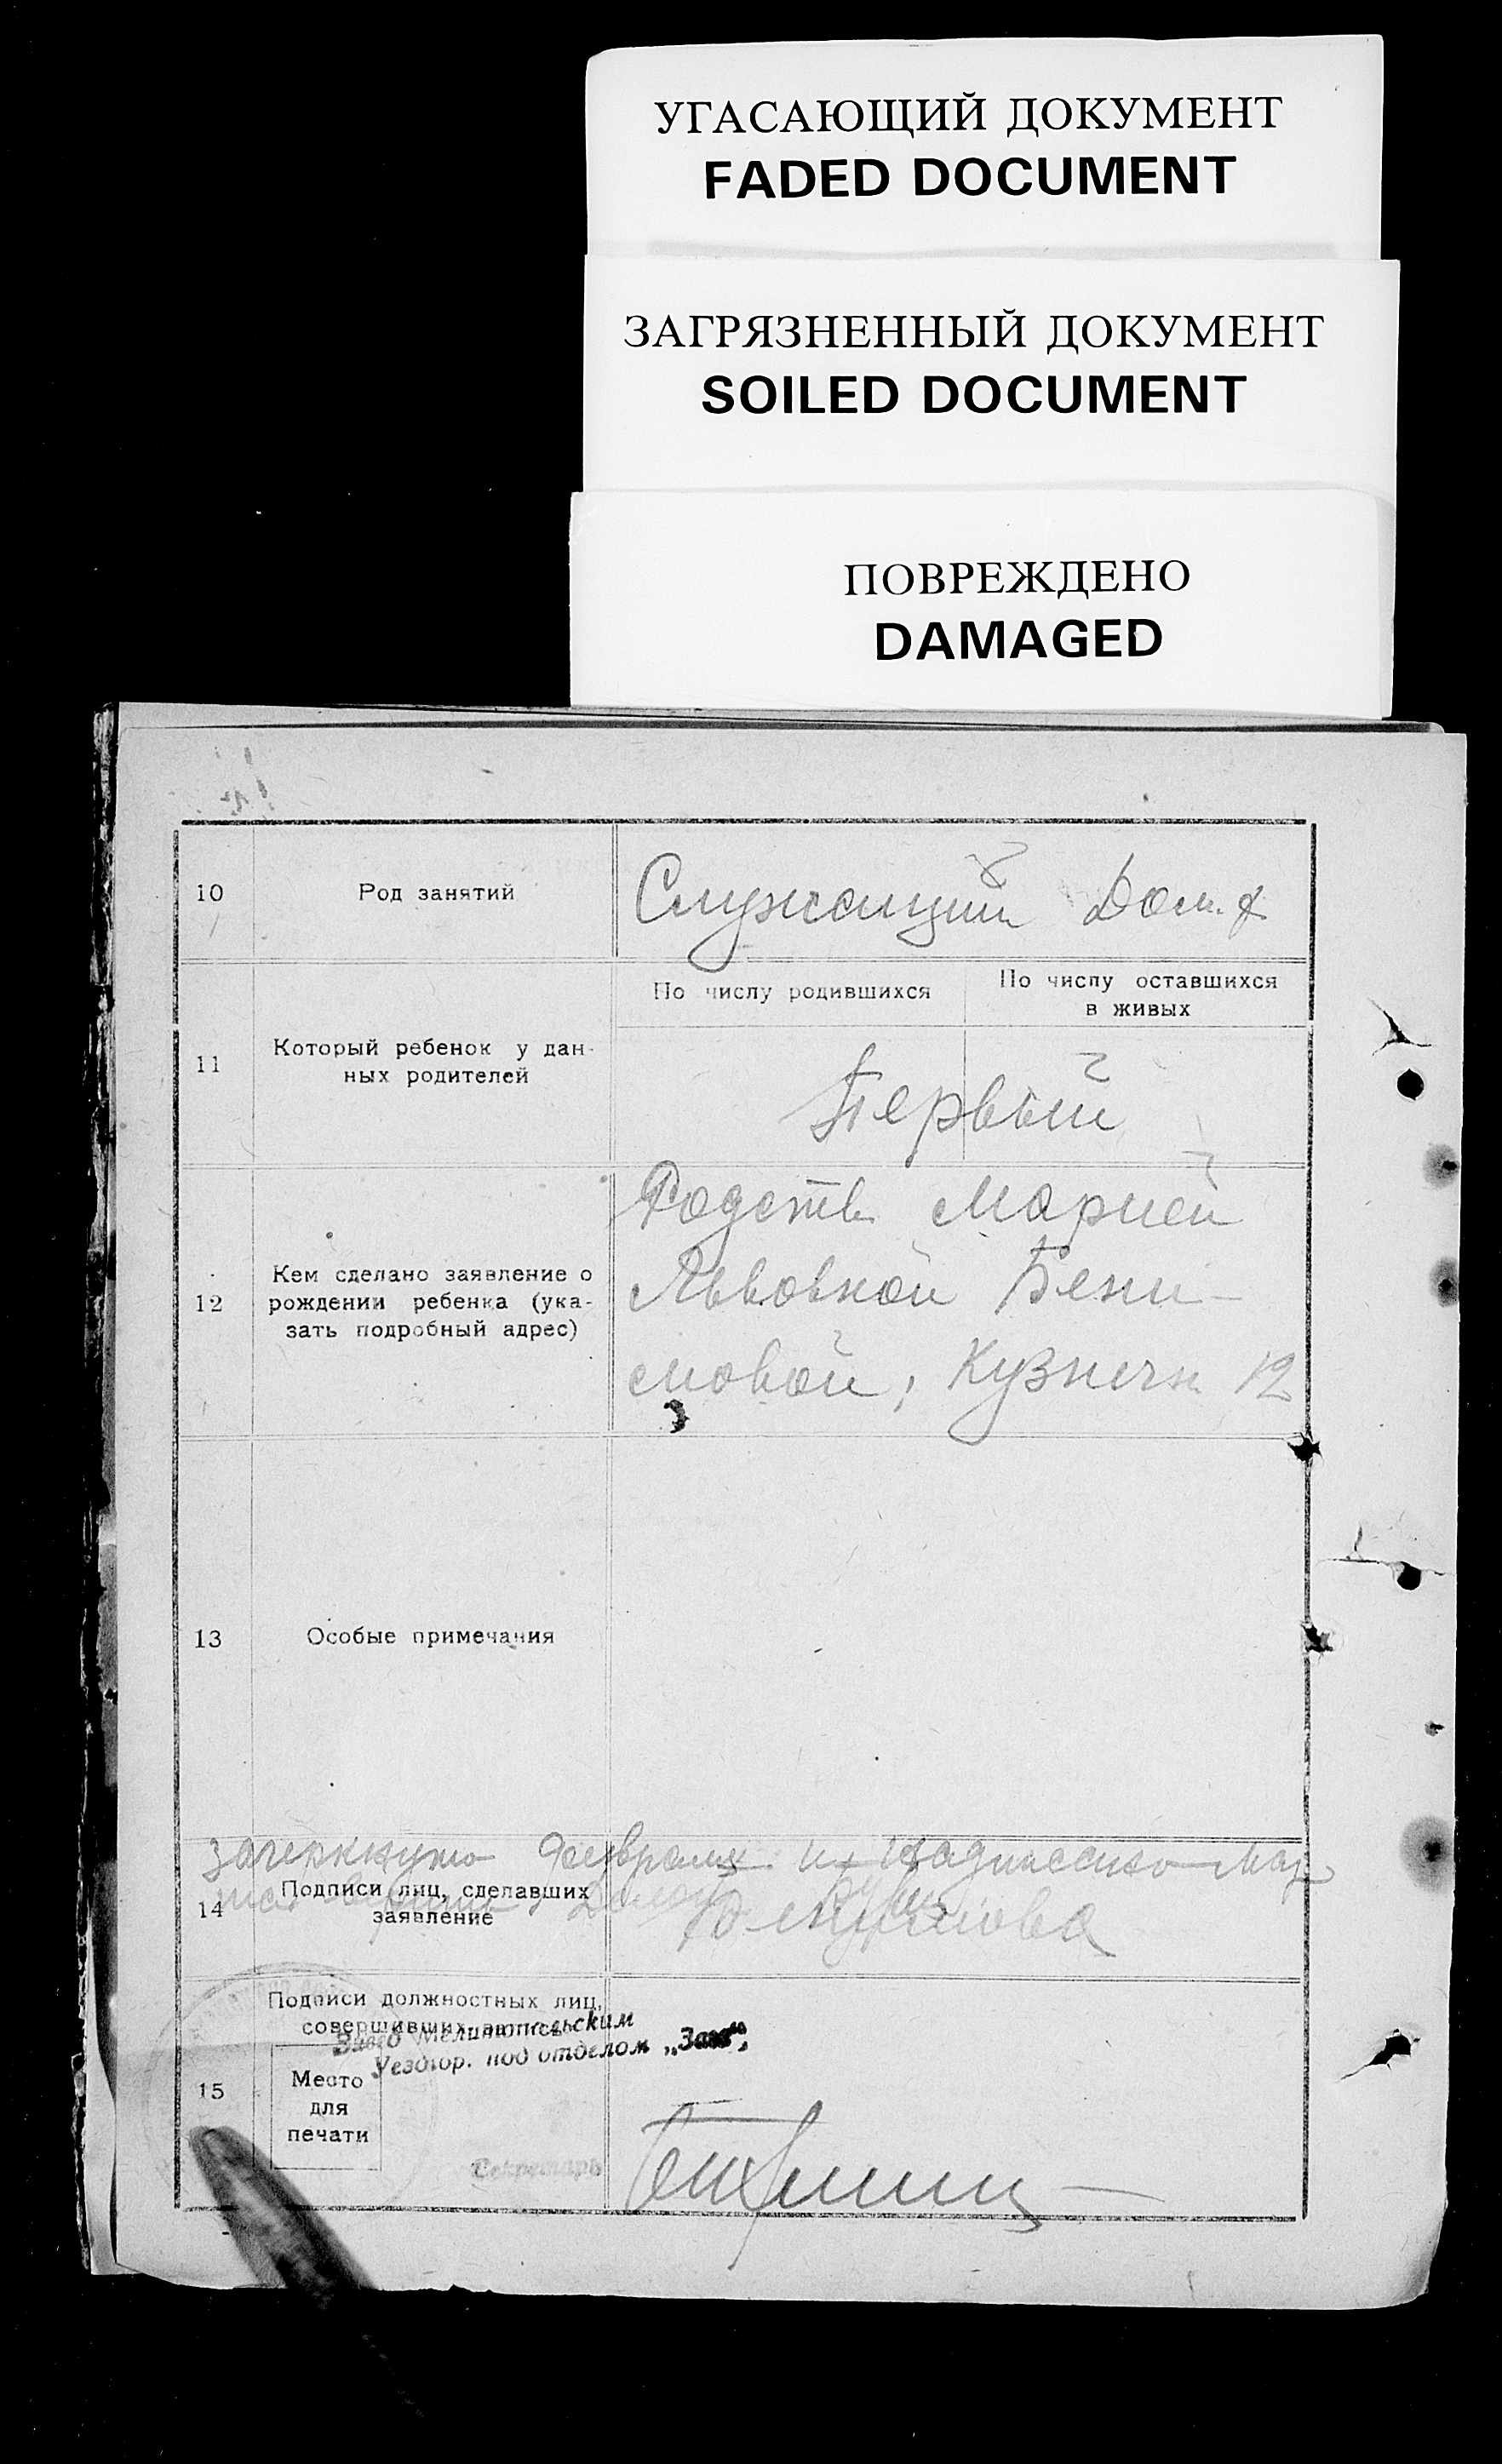 УГАСАЮЩИЙ ДОКУМЕНТ
FADED DOCUMENT
ЗАГРЯЗНЕННЫЙ ДОКУМЕНТ
SOILED DOCUMENT
ПОВРЕЖДЕНО
DAMAGED
10 Род занятий Служащий Дом. х
По числу родившихся По числу оставшихся
в живых
11 Который ребенок у дан-
ных родителей
Первый
12 Кем сделано заявление о
рождении ребенка (ука-
зать подробный адрес)
Родств. Марией
Львовной Бени-
мовой, Кузнечн 12
13 Особые примечания
зачеркнуто февраля и надписано
14 Подписи лиц, сделавших
заявление
Подписи должностных лиц,
совершивших запись
Завед Мелитопольским
Уездгор. под отделом „Загс“
15 Место
для
печати
Секретарь